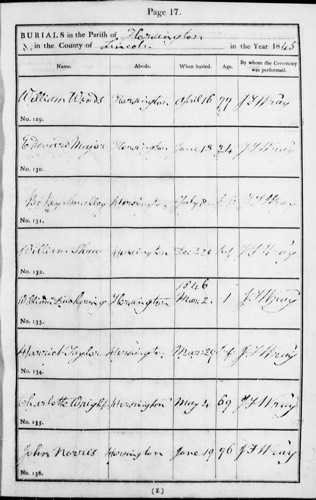 Page 17.
BURIALS in the Parish of Horsington
in the County of Lincoln in the Year 1845
Name. Abode. When buried. Age. By whom the Ceremony was performed.
William Woods Horsington April 16 79 J F Wray
No. 129.
Edward Major Horsington June 18 24 J F Wray
No. 130.
Betsy Horsington July J F Wray
No. 131.
William Shaw Horsington Dec J F Wray
No. 132.
1846
William Horsington Mar. 2. 1 J F Wray
No. 133.
Harriet Taylor Horsington Mar 29 J F Wray
No. 134.
Charlotte Wright Horsington May 4 69 J F Wray
No. 135.
John Norris Horsington June 19 76 J F Wray
No. 136.